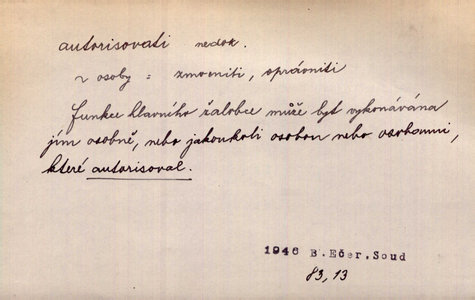 autorisovati nedok.
~ osoby = zmocniti, oprávniti
Funkce hlavního žalobce může být vykonávána
jím osobně, nebo jakoukoli osobou nebo osobami,
které autorisoval.
1946 B.Ečer, Soud
83, 13